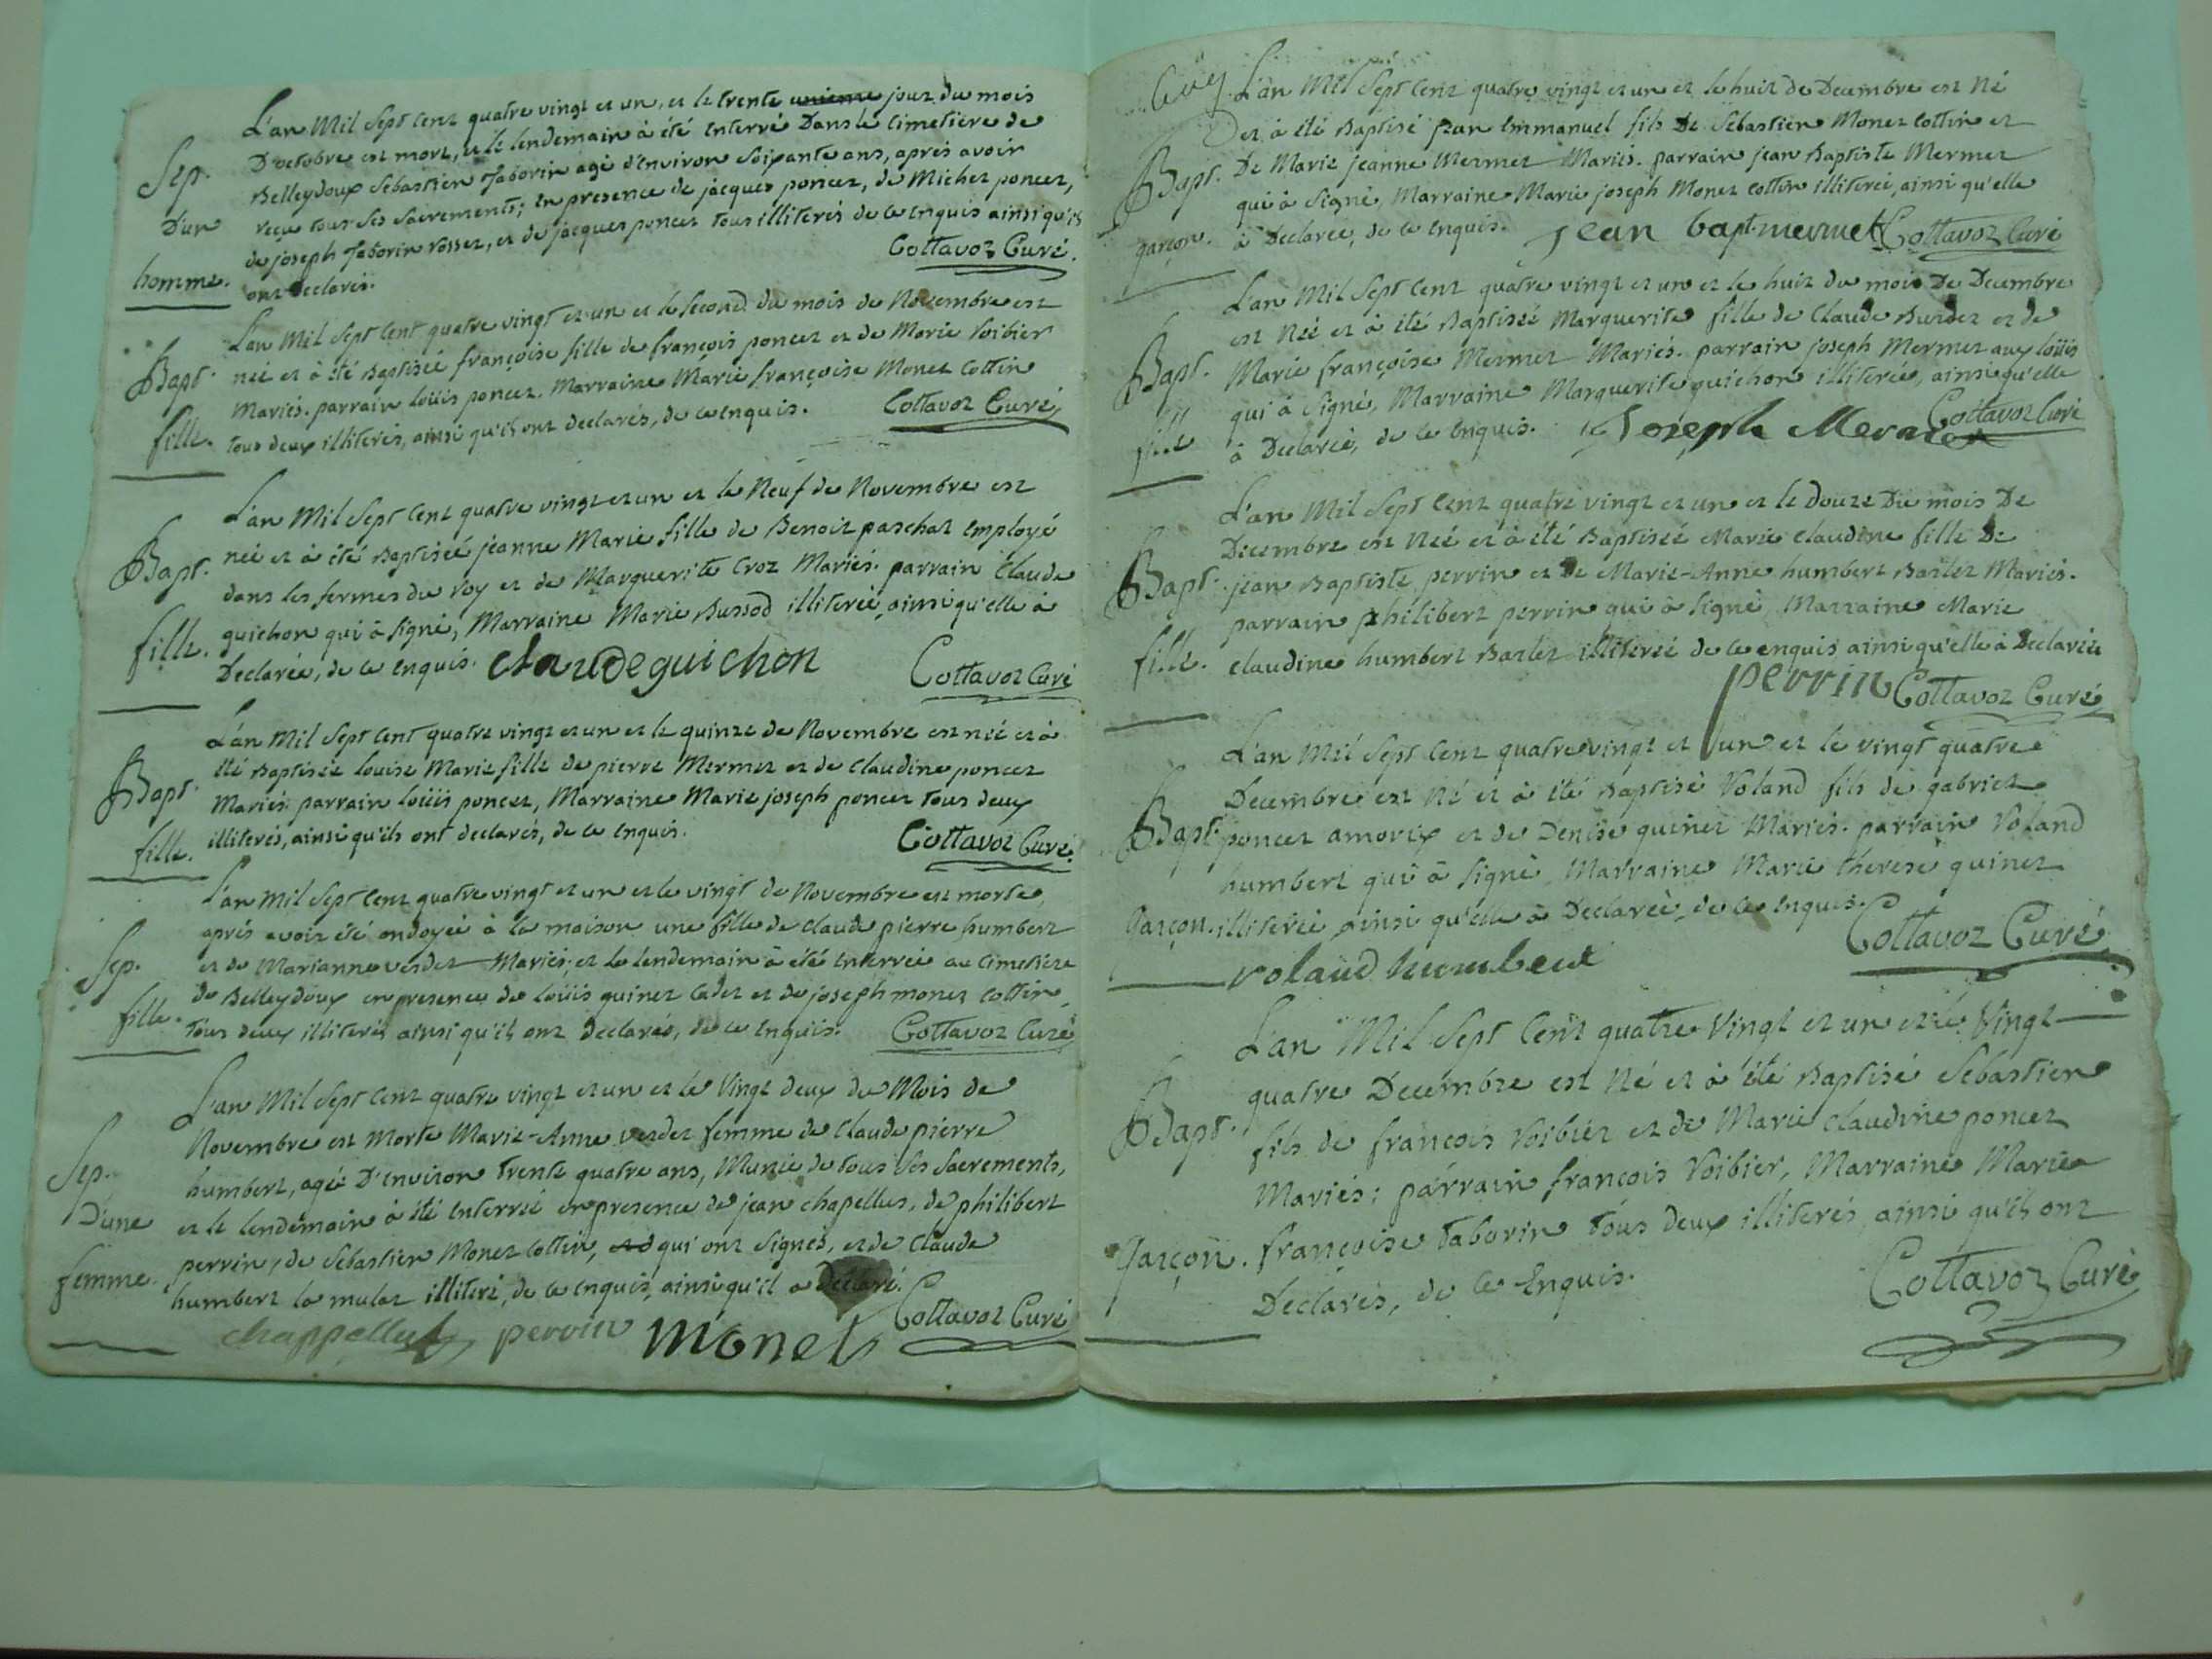 Sep.
D'un
homme.
L'an Mil Sept Cent quatre vingt et un, et le trente unieme jour du mois
D'octobre est mort, et le lendemain à été enterré Dans le Cimetiere de
Belleydoux Sebastien Taborin agé d'environ soixante ans, après avoir
reçu tous ses sacrements; en presence de jacques poncet, de Michel poncet,
de joseph Taborin rosset, et de jacques poncet tous illiterés de ce enquis ainsi qu'ils
ont declarés.
Cottavoz Curé.
Bapt.
fille.
L'an Mil Sept Cent quatre vingt et un et le second du mois de Novembre est
née et à été Baptisée françoise fille de françois poncet et de Marie Voibier
Mariés. parrain loüis poncet. Marraine Marie françoise Monet Cottin
tous deux illiterés, ainsi qu'ils ont declarés, de ce enquis.
Cottavoz Curé
Bapt.
fille.
L'an Mil Sept Cent quatre vingt et un et le Neuf de Novembre est
née et à été Baptisée jeanne Marie fille de Benoit paschal Employé
dans les fermes du roy et de Marguerite Croz Mariés. parrain Claude
guichon qui à signé, Marraine Marie Bussod illiterée, ainsi qu'elle à
Declarée, de ce enquis.
claude guichon
Cottavoz Curé
Bapt.
fille.
L'an Mil Sept Cent quatre vingt et un et le quinze de Novembre est née et à
été Baptisée louise Marie fille de pierre Mermet et de claudine poncet
Mariés. parrain loüis poncet, Marraine Marie joseph poncet tous deux
illiterés, ainsi qu'ils ont declarés, de ce enquis.
Cottavoz Curé.
Sep.
fille.
L'an Mil Sept Cent quatre vingt et un et le vingt de Novembre est morte,
après avoir été ondoyée à la maison une fille de claude pierre humbert
et de Marianne verdet Mariés; et le lendemain à été enterrée au Cimetiere
de Belleydoux en presence de loüis guinet Cadet et de joseph monet Cottin,
tous deux illiterés ainsi qu'ils ont declarés, de ce enquis.
Cottavoz Curé
Sep.
D'une
femme.
L'an Mil Sept Cent quatre vingt et un et le Vingt deux du Mois de
Novembre est Morte Marie-Anne verdet femme de Claude pierre
humbert, agée D'environ trente quatre ans, Munie de tous ses sacrements,
et le lendemain à été enterrée en presence de jean chapellus, de philibert
perrin, de Sebastien Monet Cottin, qui ont signés, et de Claude
humbert la mulaz illiteré, de ce enquis, ainsi qu'il a Declaré.
Cottavoz Curé
chappelluz perrin monet
L'an Mil Sept Cent quatre vingt et un et le huit de Decembre est Né
et à été Baptisé jean Emmanuel fils De Sebastien Monet Cottin et
De Marie jeanne Mermet Mariés. parrain jean Baptiste Mermet
qui à signé, Marraine Marie joseph Monet Cottin illiterée, ainsi qu'elle
à Declarée, de ce enquis.
Bapt.
garçon.
jean bapt mermet
Cottavoz Curé
Bapt.
fille
L'an Mil Sept Cent quatre vingt et un et le huit du mois De Decembre
est Née et à été Baptisée Marguerite fille de Claude Burdet et de
Marie françoise Mermet Mariés. parrain joseph Mermet aux loüis
qui à signé, Marraine Marguerite guichon illiterée, ainsi qu'elle
à Declarée, de ce enquis.
Joseph Mermet
Cottavoz Curé
Bapt.
fille.
L'an Mil Sept Cent quatre vingt et un et le Douze Du mois De
Decembre est Née et à été Baptisée Marie claudine fille De
jean Baptiste perrin et De Marie-Anne humbert Barlet Mariés.
parrain philibert perrin qui à signé, Marraine Marie
claudine humbert Barlet illiterée de ce enquis ainsi qu'elle à Declarée
perrin
Cottavoz Curé
Bapt.
garçon.
L'an Mil Sept Cent quatre vingt et un et le vingt quatre
Decembre est Né et à été Baptisé Roland fils de gabriel
poncet amorix et de Denise guinet Mariés. parrain Roland
humbert qui à signé, Marraine Marie therese guinet
illiterée ainsi qu'elle à Declarée, de ce enquis.
rolaud humbert
Cottavoz Curé
Bapt.
garçon.
L'an Mil Sept Cent quatre Vingt et un et le Vingt
quatre Decembre est Né et à été Baptisé Sebastien
fils de françois Voibier et de Marie Claudine poncet
Mariés; parrain françois Voibier, Marraine Marie
françoise Taborin tous deux illiterés, ainsi qu'ils ont
Declarés, de ce Enquis.
Cottavoz Curé